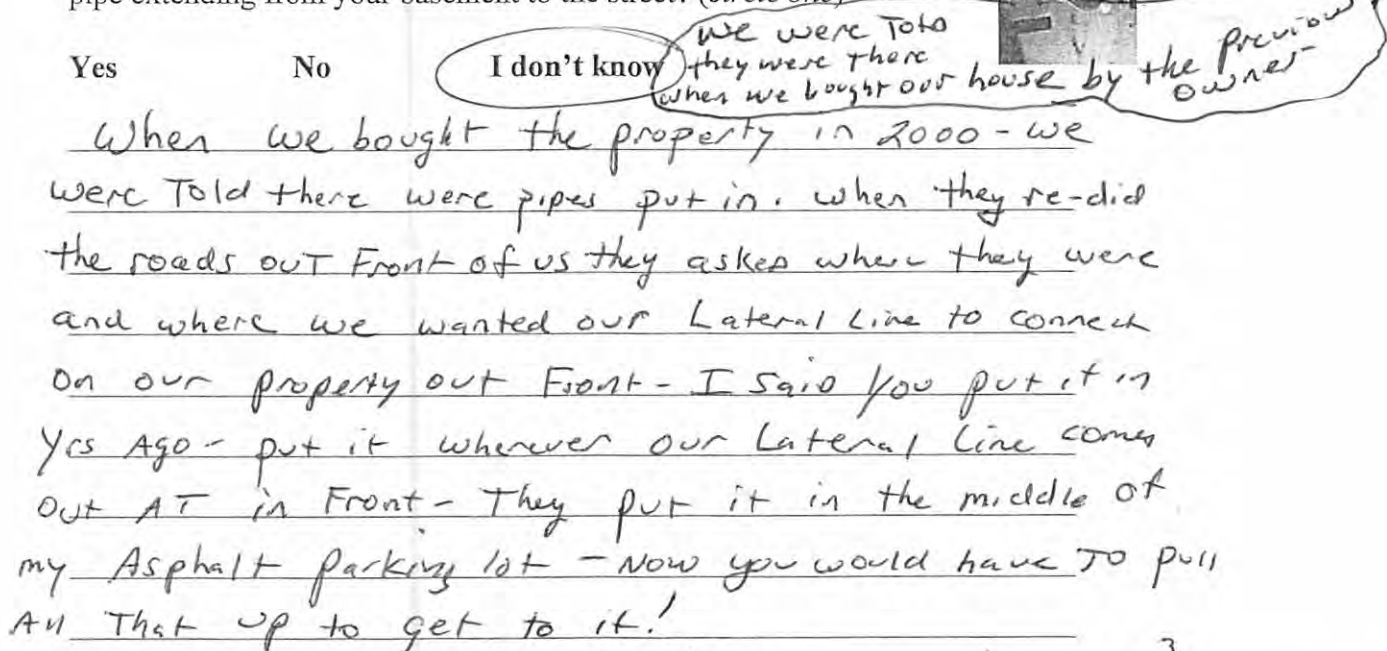 pipe extending from your basement to the street? (circle one)
Yes No I don't know
we were Told
they were there
when we bought our house by the previous
owner
When we bought the property in 2000 - we
were Told there were pipes put in. when they re-did
the roads ouT Front of us they asked where they were
and where we wanted our Lateral Line to connect
on our property out Front - I said you put it in
yrs Ago - put it wherever our Lateral Line comes
out AT in Front - They put it in the middle of
my Asphalt parking lot - Now you would have To pull
All That up to get to it!
3